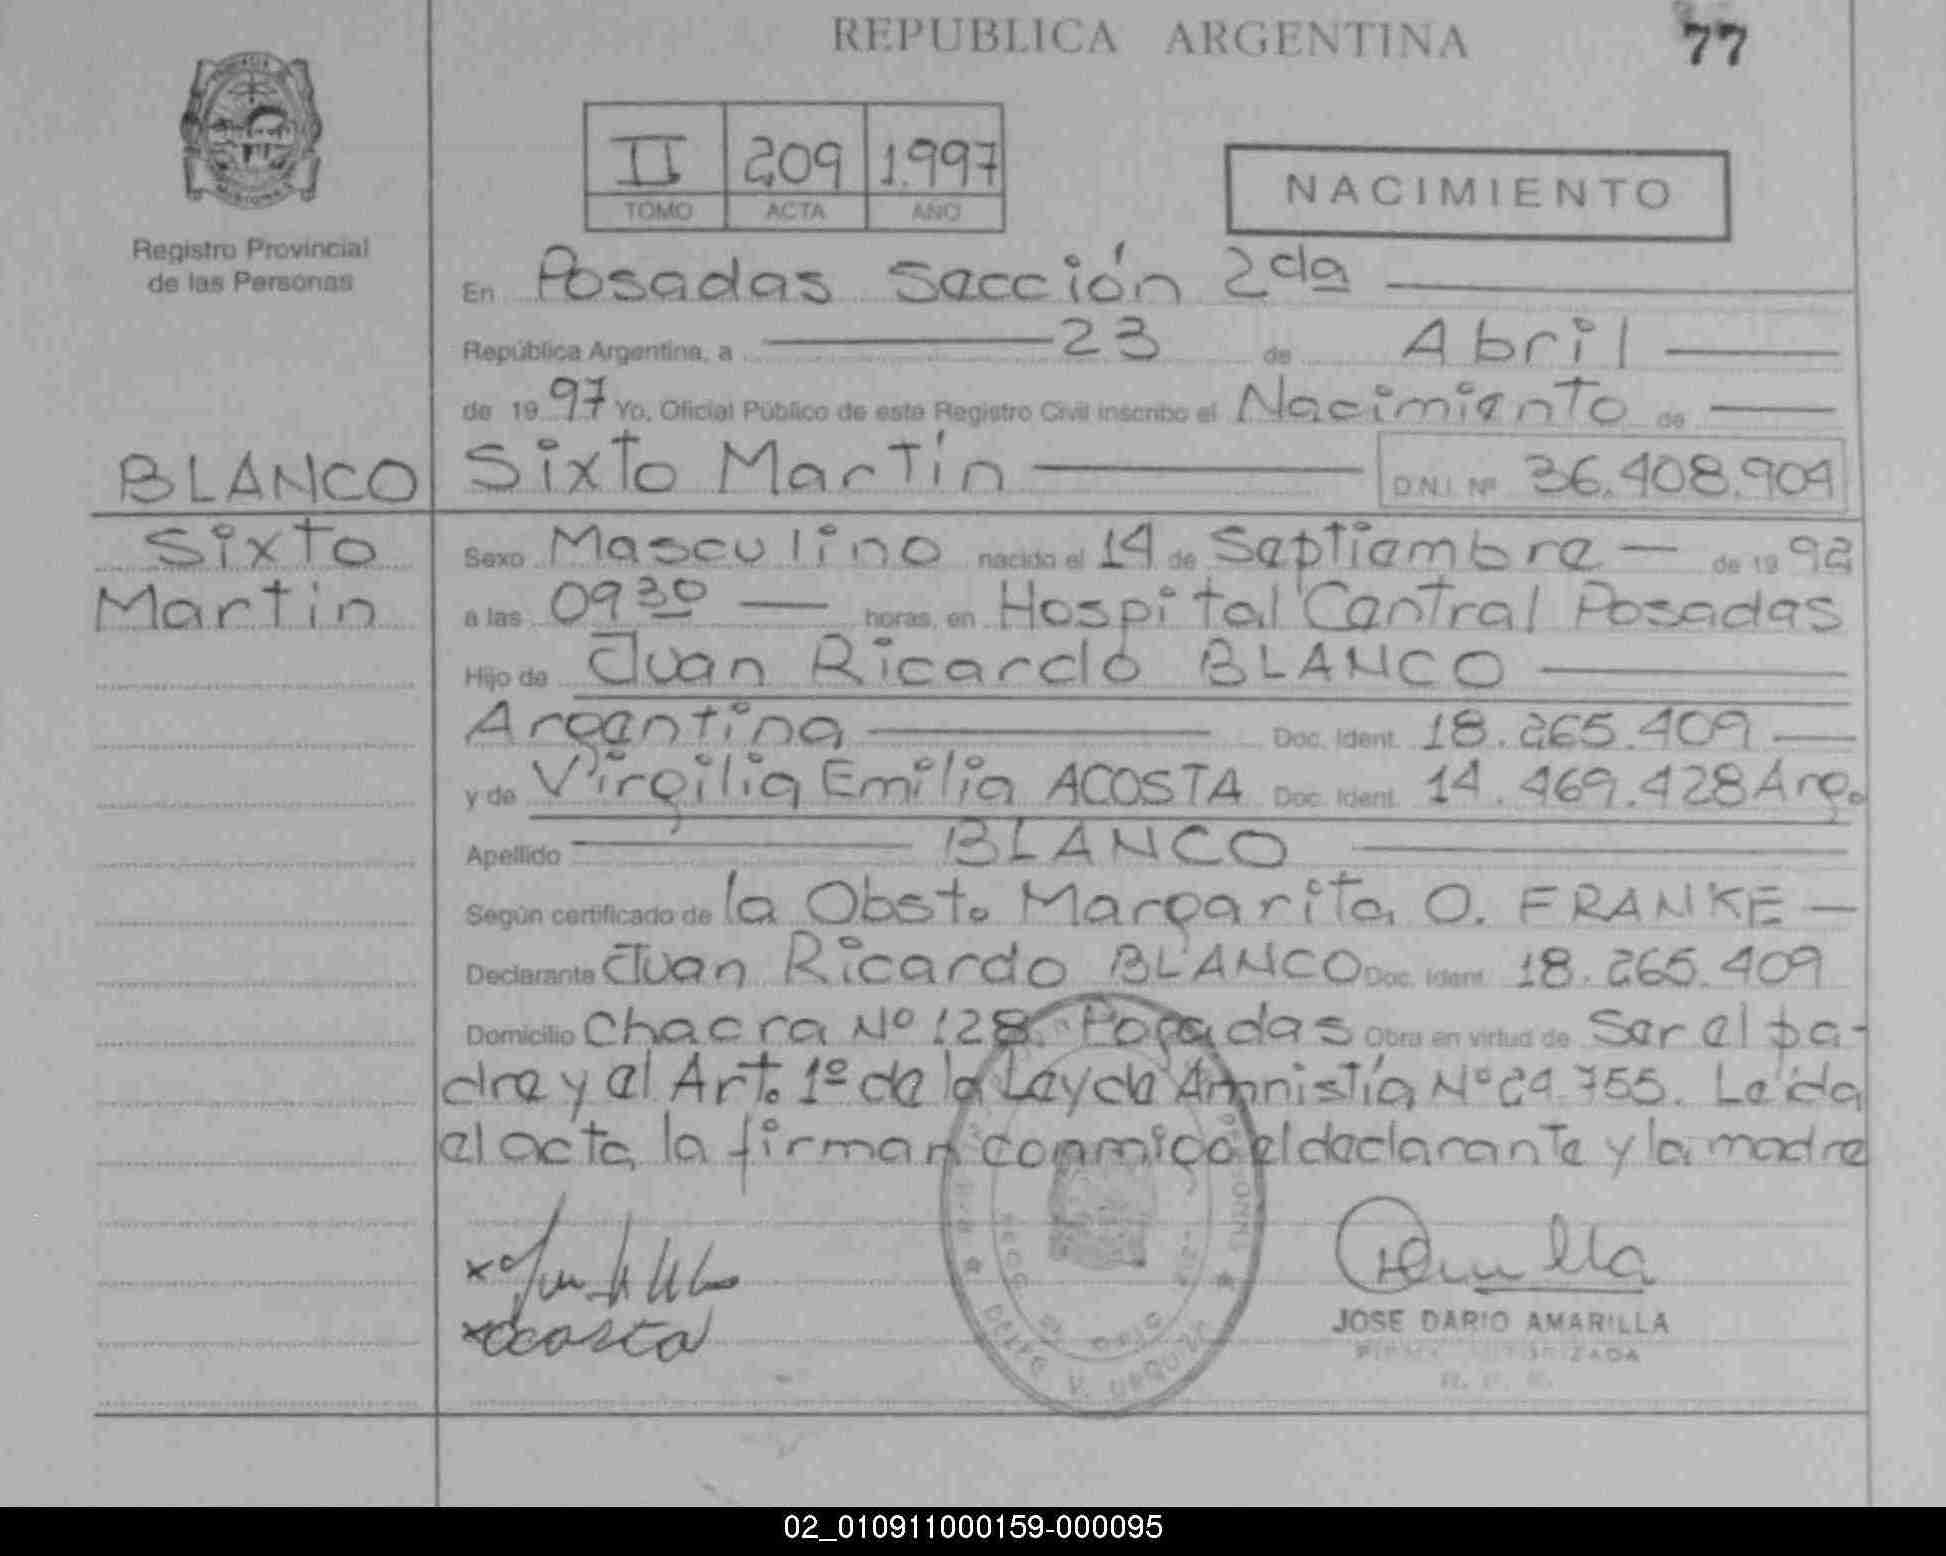 REPUBLICA ARGENTINA
77
II 209 1.997
TOMO ACTA AÑO
NACIMIENTO
Registro Provincial
de las Personas
En Posadas Sección 2da
República Argentina, a 23 de Abril
de 1997 Yo, Oficial Público de este Registro Civil inscribo el Nacimiento de
BLANCO Sixto Martín D.N.I. Nº 36.408.904
Sixto Sexo Masculino nacido el 14 de Septiembre de 1992
Martin a las 09 30 horas, en Hospital Central Posadas
Hijo de Juan Ricardo BLANCO
Argentina Doc. Ident. 18.265.409
y de Virgilia Emilia ACOSTA Doc. Ident. 14.469.428 Arg.
Apellido BLANCO
Según certificado de la Obst. Margarita O. FRANKE
Declarante Juan Ricardo BLANCO Doc. Ident. 18.265.409
Domicilio Chacra Nº 128 Posadas Obra en virtud de Ser el pa-
dre y el Art. 1º de la Ley de Amnistía Nº 24.755. Leída
el acta la firman conmigo el declarante y la madre
Acosta
JOSE DARIO AMARILLA
FIRMA AUTORIZADA
R. P. P.
02_010911000159-000095